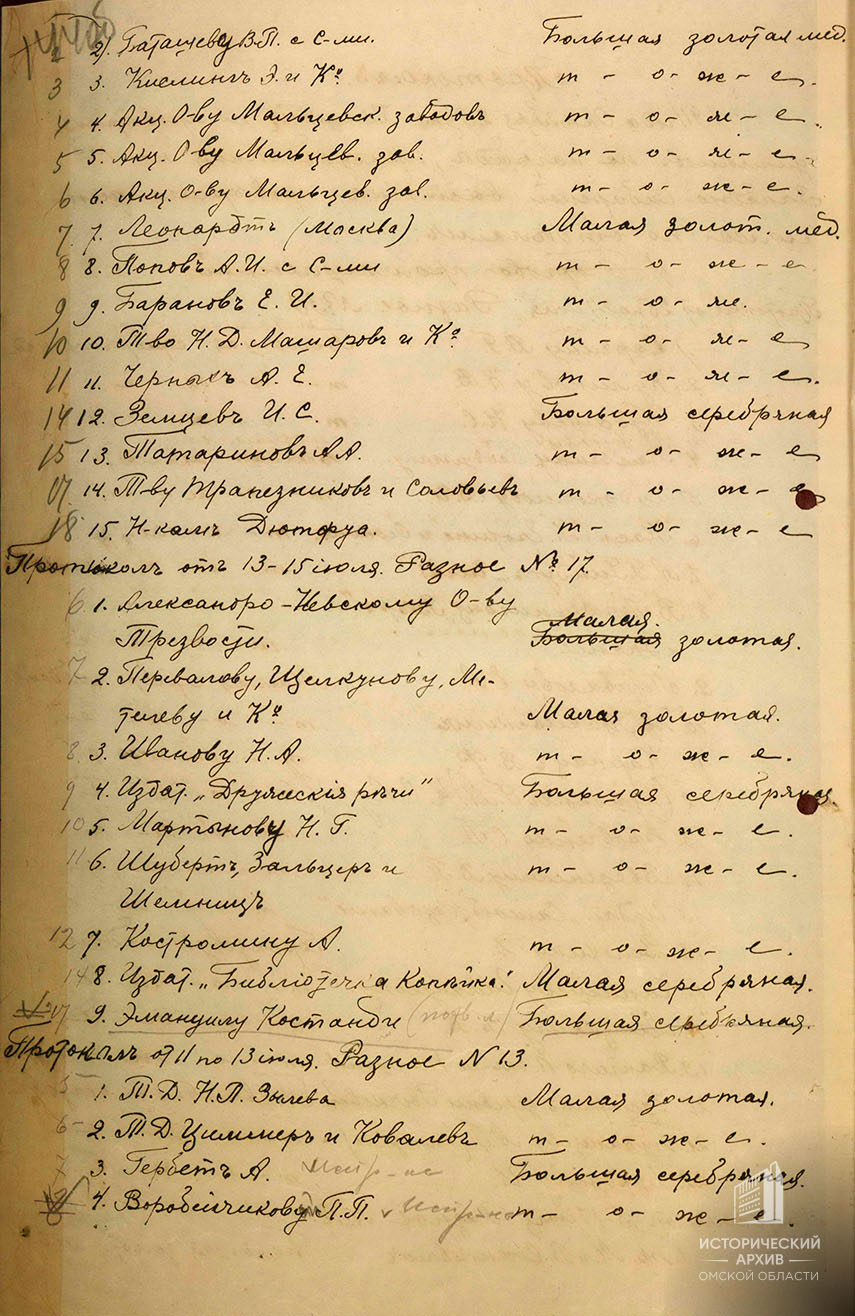 2 2) Баташеву В.П. с С-ми. Большая золотая мед.
3 3. Кислингъ Э. и Ко т - о - ж - е.
4 4. Акц. О-ву Мальцевск. заводовъ т - о - ж - е.
5 5. Акц. О-ву Мальцев. зав. т - о - ж - е.
6 6. Акц. О-ву Мальцев. зав. т - о - ж - е.
7 7. Леонардтъ (Москва) Малая золот. мед.
8 8. Поповъ А.И. с С-ми т - о - ж - е
9 9. Барановъ Е. И. т - о - ж.
10 10. Т-во Н. Д. Машаровъ и Ко т - о - ж - е
11 11. Черныхъ А. Е. т - о - ж - е.
14 12. Земцевъ И. С. Большая серебряная
15 13. Татариновъ А.А. т - о - ж - е
17 14. Т-ву Трапезниковъ и Соловьевъ т - о - ж - е
18 15. Н-камъ Дютфуа. т - о - ж - е
Протоколъ отъ 13-15 iюля. Разное № 17.
6 1. Александро-Невскому О-ву
Малая.
Трезвости. Большая золотая.
7 2. Перевалову, Щелкунову, Ме-
телеву и Ко Малая золотая.
8 3. Иванову Н. А. т - о - ж - е.
9 4. Издат. „Дружескiя рѣчи" Большая серебряная.
10 5. Мартынову Н. Г. т - о - ж - е.
11 6. Шубертъ, Зальцеръ и т - о - ж - е.
Шемницъ
12 7. Костромину А. т - о - ж - е.
14 8. Издат. „Библiотечка Копѣйка". Малая серебряная.
17 9. Эмануилу Костанди Большая серебряная.
Протоколъ от 11 по 13 iюля. Разное N 13.
5 1. Т. Д. Н. П. Зылева Малая золотая.
6 2. Т. Д. Циммеръ и Ковалевъ т - о - ж - е.
7 3. Гербетъ А. Большая серебряная.
8 4. Воробейчикову П.П. т - о - ж - е.
ИСТОРИЧЕСКИЙ
АРХИВ
ОМСКОЙ ОБЛАСТИ